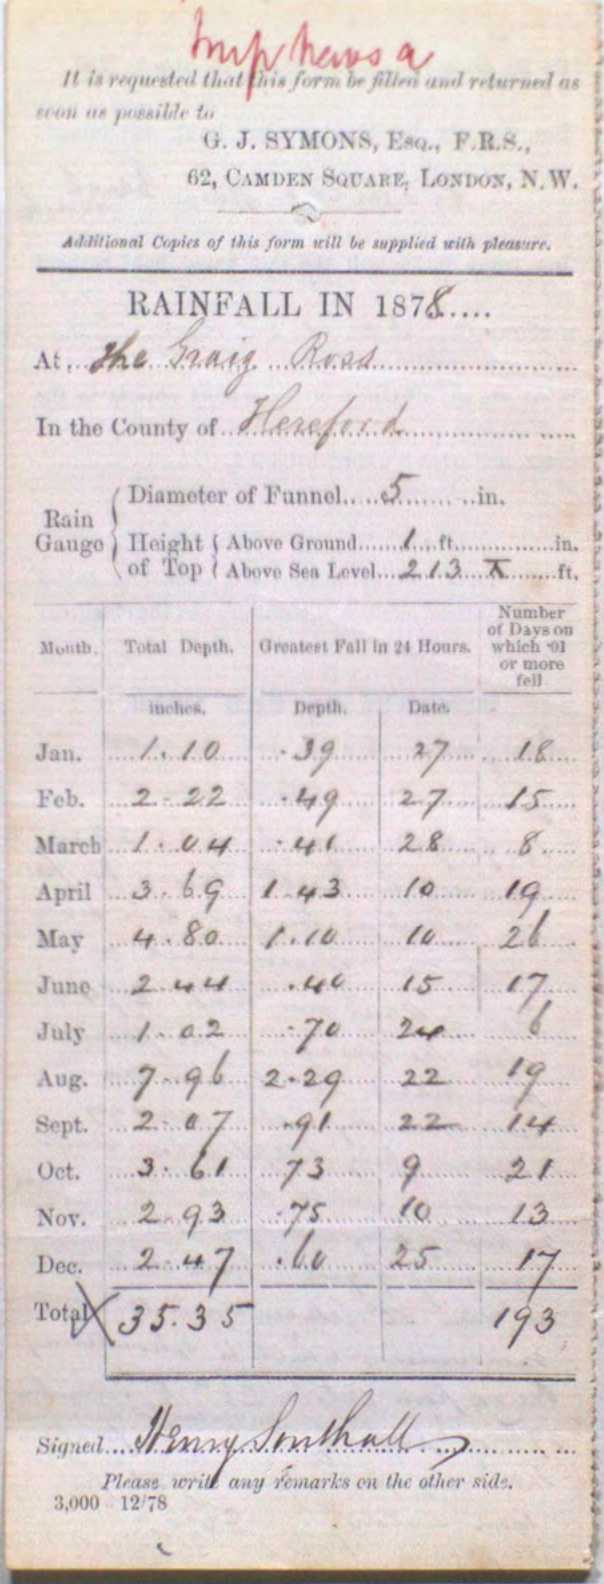 It is requested that this form be filled and returned as
soon as possible to
G. J. SYMONS, Esq., F.R.S.,
62, CAMDEN SQUARE, LONDON, N.W.
Additional Copies of this form will be supplied with pleasure.
RAINFALL IN 1878....
At The Graig Ross
In the County of Hereford
Rain Gauge
Diameter of Funnel 5 in.
Height of Top
Above Ground 1 ft. in.
Above Sea Level 213 ft.
Month. Total Depth. Greatest Fall in 24 Hours. Number of Days on which ·01 or more fell
inches. Depth. Date.
Jan. 1.10 .39 27 18
Feb. 2.22 .49 27 15
March 1.04 .41 28 8
April 3.69 1.43 10 19
May 4.80 1.10 10 26
June 2.44 .40 15 17
July 1.02 .70 24 6
Aug. 7.96 2.29 22 19
Sept. 2.07 .91 22 14
Oct. 3.61 73 9 21
Nov. 2.93 .75 10 13
Dec. 2.47 .60 25 17
Total 35.35 193
Signed Henry Southall
Please write any remarks on the other side.
3,000 12/78